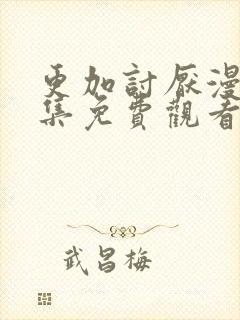 更加討厭漫
集免費觀看
武昌梅